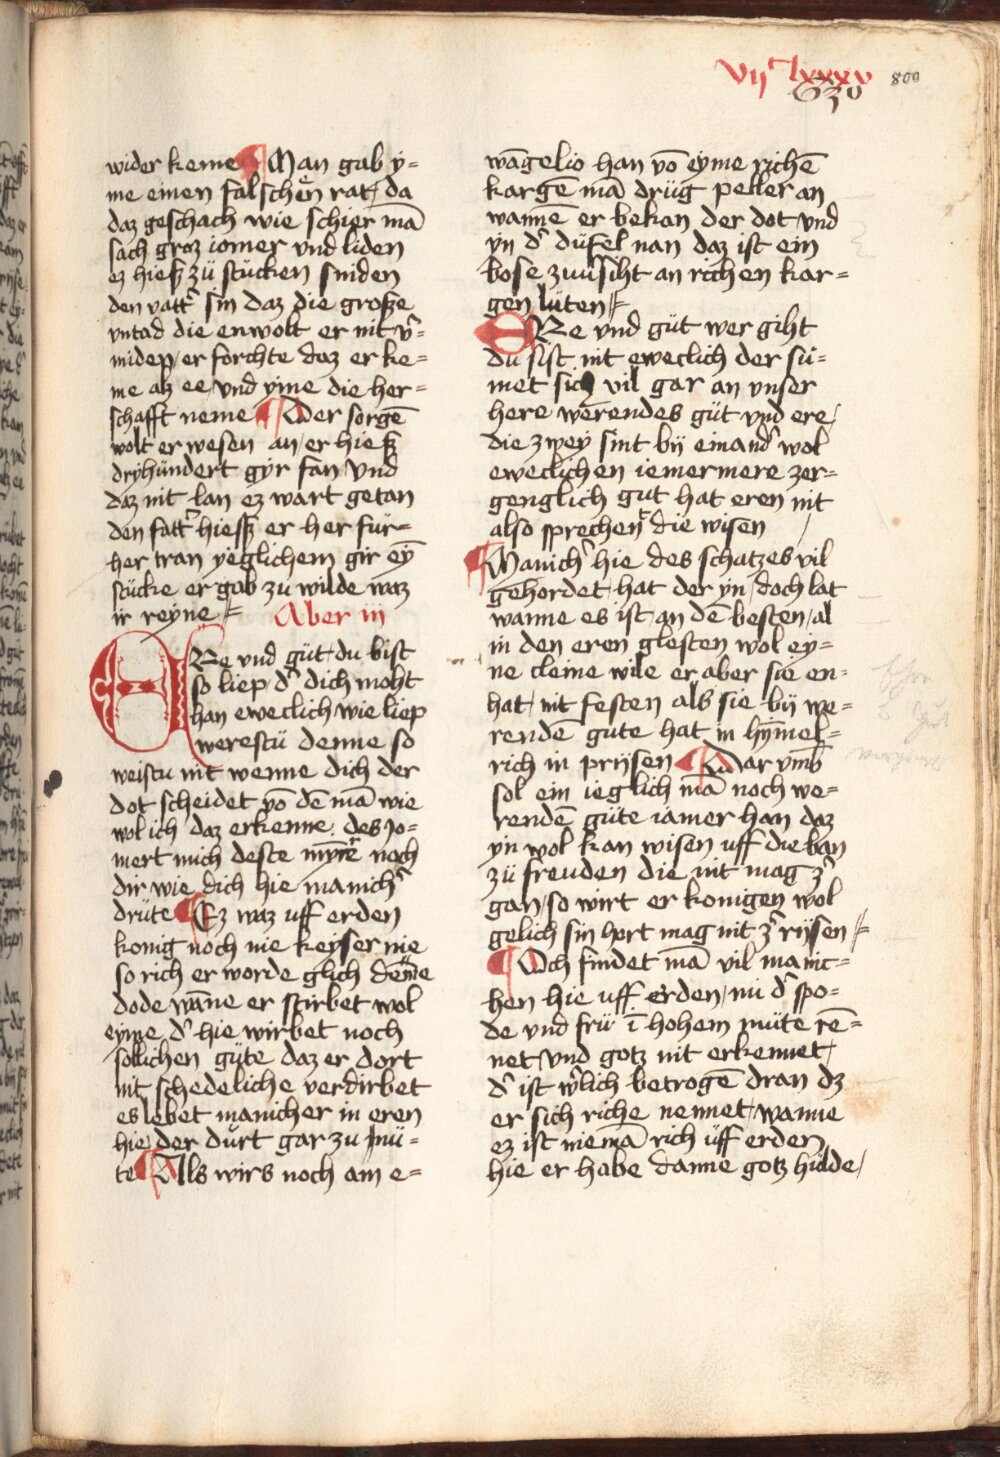 vij lxxxv
630
800
wider keme Man gab ÿ=
me einen falschen rat / da
daz geschach wie schier mā
sach groz iomer vnd liden
ez hieſz zü stücken sniden
den vattʾ sin daz die große
vntad die enwolt er nit vʾ=
miden / er forchte daz er ke=
me alz ee / vnd yme die her=
schafft neme Der sorgē
wolt er wesen an / er hieſz
dryhündert gÿr fan vnd
daz nit lan ez wart getan
den fattʾ hiesz er her für=
her tran yeglichem gir eÿ
stücke er gab zu wilde waz
ir reyne
Aber iij
Ere vnd güt du bist
so liep dʾ dich moht
han eweclich wie liep
werestü denne so
weistu nit wenne dich der
dot scheidet vō dē mā wie
wol ich daz erkenne des jo=
mert mich deste myre noch
dir wie dich hie manichʾ
drüte Ez waz uff erden
konig noch nie keyser nie
so rich er worde glich deme
dode wāne er stirbet wol
eyme dʾ hie wirbet noch
sollichen güte daz er dort
nit schedeliche verdirbet
es lebet manicher in eren
hie / der dürt gar zu mü=
te Als wirs noch am e=
wāgelio han vō eyme richē
kargē mā drüg peller an
wannē er bekan der dot vnd
yn dʾ düfel nan daz ist ein
bose zuuʾsiht an richen kar=
gen lüten
Ere vnd güt wer giht
du sist nit eweclich der sü=
met sich vil gar an vnser
here werendes güt vnd ere /
die zwey sint bÿ einandʾ wol
eweclichen iemermere zer=
genglich gut hat eren nit
also sprechen die wisen
Manichʾ hie des schatzes vil
gehordet hat der yn / doch lat
wanne es ist an dē besten / al
in den eren glesten wol ey=
ne cleine wile er aber sie en=
hat nit festen als sie bÿ we=
rendē gute hat in hÿmel=
rich in prÿsen Dar vmb
sol ein ieglich mā noch we=
rendē güte iamer han daz
yn wol kan wisen uff die ban
zü freuden die nit mag zʾ
gan / so wirt er konigen wol
gelich sin hort mag nit zʾ rÿsen
Och findet mā vil manic=
hen hie uff erden / nu dʾ spo=
de vnd frü ī hohem müte rē=
net vnd gotz nit erkennet /
dʾ ist wʾlich betrogē dran dz
er sich riche nennet wanne
ez ist niemā rich uff erden
hie er habe danne gotz hülde /